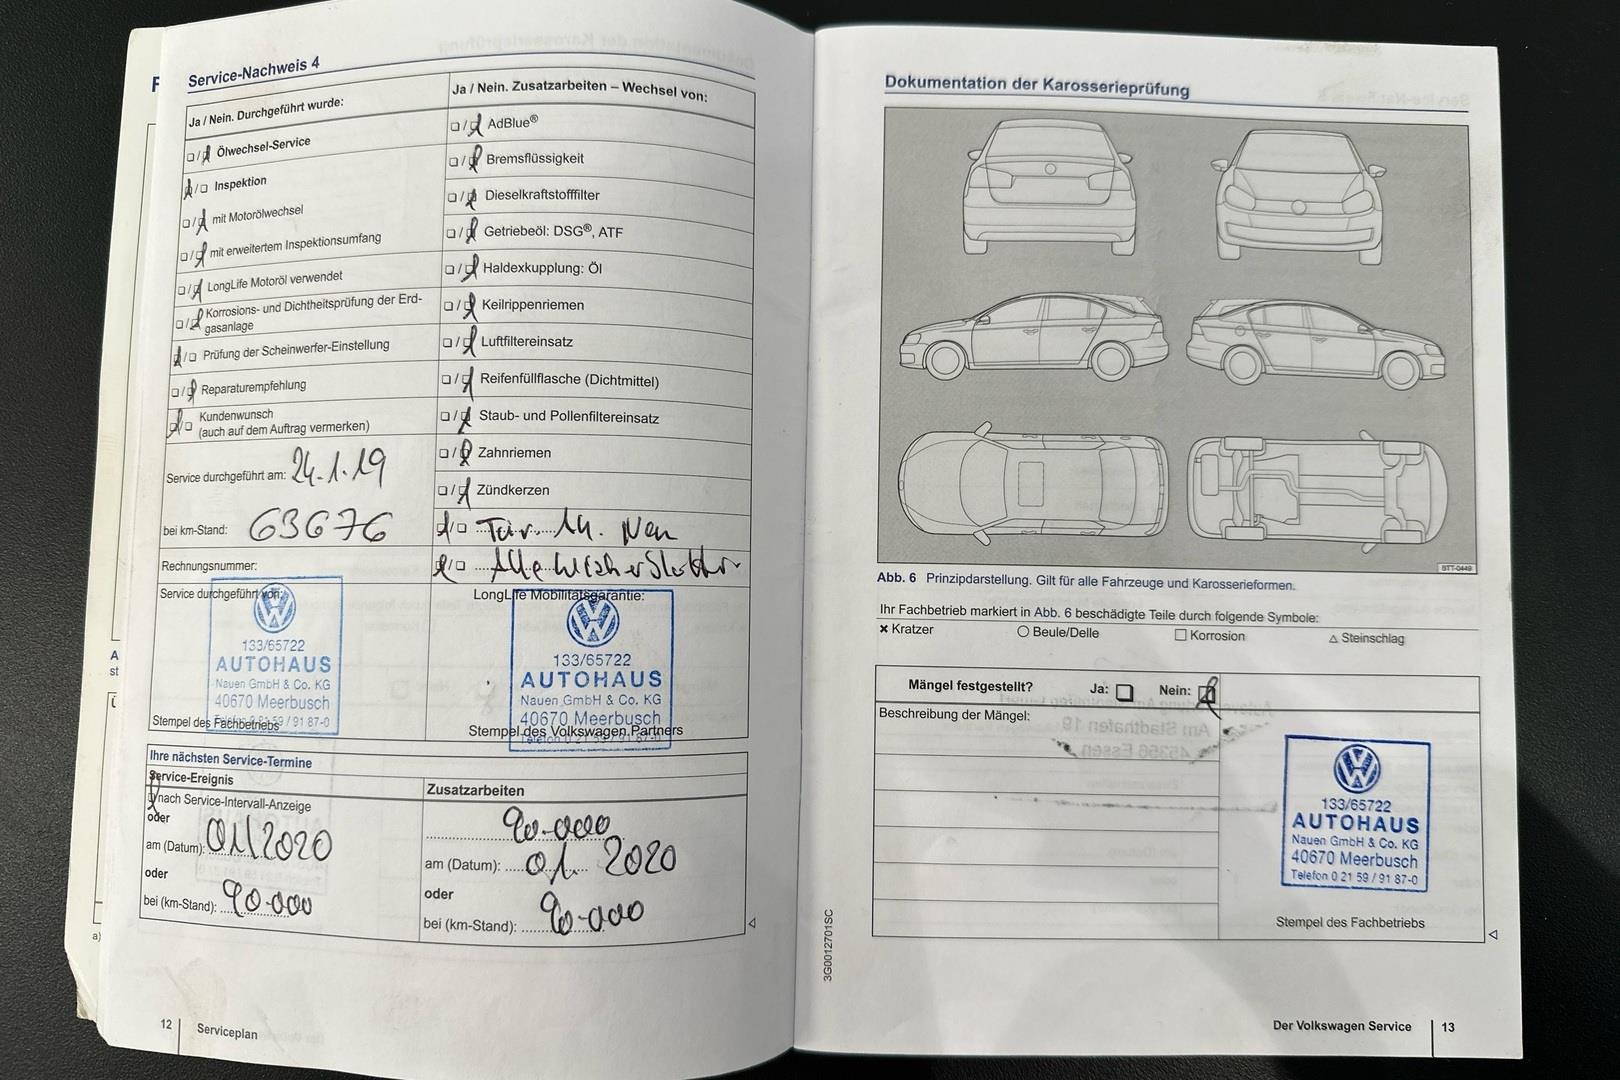 Service-Nachweis 4
Ja / Nein. Durchgeführt wurde:
Ölwechsel-Service
Inspektion
mit Motorölwechsel
mit erweitertem Inspektionsumfang
LongLife Motoröl verwendet
Korrosions- und Dichtheitsprüfung der Erd-
gasanlage
Prüfung der Scheinwerfer-Einstellung
Reparaturempfehlung
Kundenwunsch
(auch auf dem Auftrag vermerken)
Service durchgeführt am: 24.1.19
bei km-Stand: 63676
Rechnungsnummer:
Service durchgeführt von:
133/65722
AUTOHAUS
Nauen GmbH & Co. KG
40670 Meerbusch
Telefon 0 21 59 / 91 87-0
Stempel des Fachbetriebs
Ja / Nein. Zusatzarbeiten – Wechsel von:
AdBlue®
Bremsflüssigkeit
Dieselkraftstofffilter
Getriebeöl: DSG®, ATF
Haldexkupplung: Öl
Keilrippenriemen
Luftfiltereinsatz
Reifenfüllflasche (Dichtmittel)
Staub- und Pollenfiltereinsatz
Zahnriemen
Zündkerzen
Neu
Alle
LongLife Mobilitätsgarantie:
133/65722
AUTOHAUS
Nauen GmbH & Co. KG
40670 Meerbusch
Telefon 0 21 59 / 91 87-0
Stempel des Volkswagen Partners
Ihre nächsten Service-Termine
Service-Ereignis
nach Service-Intervall-Anzeige
oder
am (Datum): 01/2020
oder
bei (km-Stand): 90.000
Zusatzarbeiten
90.000
am (Datum): 01. 2020
oder
bei (km-Stand): 90.000
12 Serviceplan
Dokumentation der Karosserieprüfung
BTT-0449
Abb. 6 Prinzipdarstellung. Gilt für alle Fahrzeuge und Karosserieformen.
Ihr Fachbetrieb markiert in Abb. 6 beschädigte Teile durch folgende Symbole:
× Kratzer ○ Beule/Delle □ Korrosion △ Steinschlag
Mängel festgestellt? Ja: Nein:
Beschreibung der Mängel:
133/65722
AUTOHAUS
Nauen GmbH & Co. KG
40670 Meerbusch
Telefon 0 21 59 / 91 87-0
Stempel des Fachbetriebs
3G0012701SC
Der Volkswagen Service 13